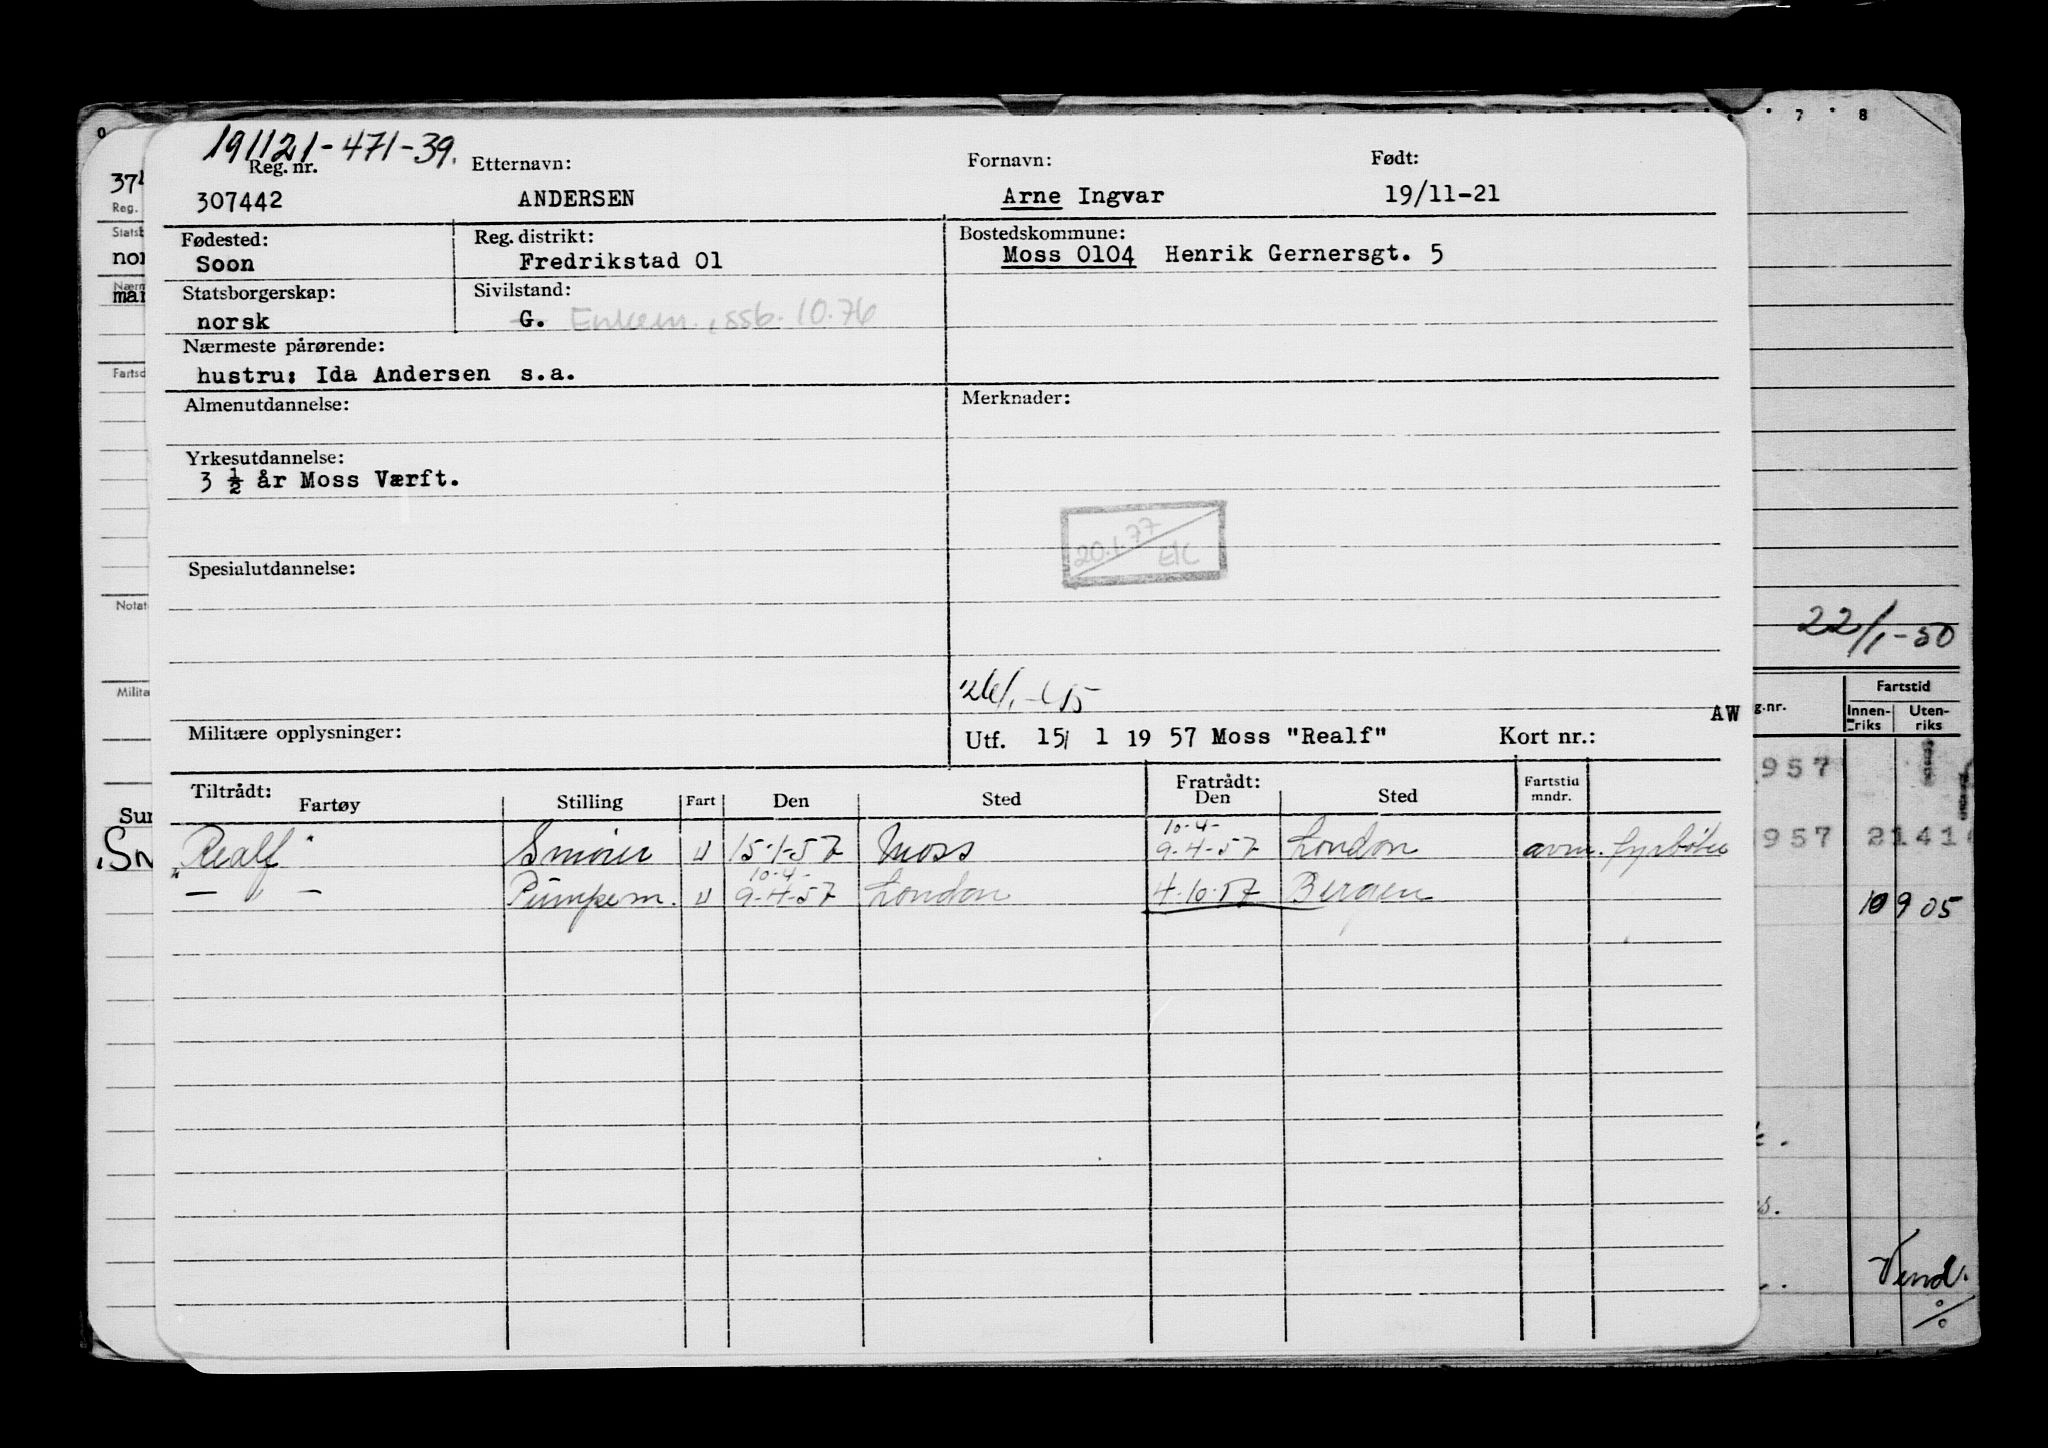 191121-471-39.
Reg. nr. Etternavn: Fornavn: Født:
307442 ANDERSEN Arne Ingvar 19/11-21
Fødested: Reg. distrikt: Bostedskommune:
Soon Fredrikstad 01 Moss 0104 Henrik Gernersgt. 5
Statsborgerskap: Sivilstand:
norsk G. Enkem. ssb. 10.76
Nærmeste pårørende:
hustru: Ida Andersen s.a.
Almenutdannelse: Merknader:
Yrkesutdannelse:
3 ½ år Moss Værft.
20.1.77 EK
Spesialutdannelse:
22/1-50
Militære opplysninger:
AW
Utf. 15/ 1 19 57 Moss "Realf" Kort nr.:
Tiltrådt: Fratrådt: Fartstid
Fartøy Stilling Fart Den Sted Den Sted mndr.
10-4-
"Realf" Smører U 15-1-57 Moss 9-4-57 London avm. fyrbøter
10-4-
— " — Pumpem. U 9-4-57 London 4-10-57 Bergen
Fartstid
g.nr. Innenriks Utenriks
957
957 21 41
10 9 05
Vend.
%
0 7 8
37
Reg.
Statsb
nor
Nærm
mar
Fartsd
Notat
Milita
Sur